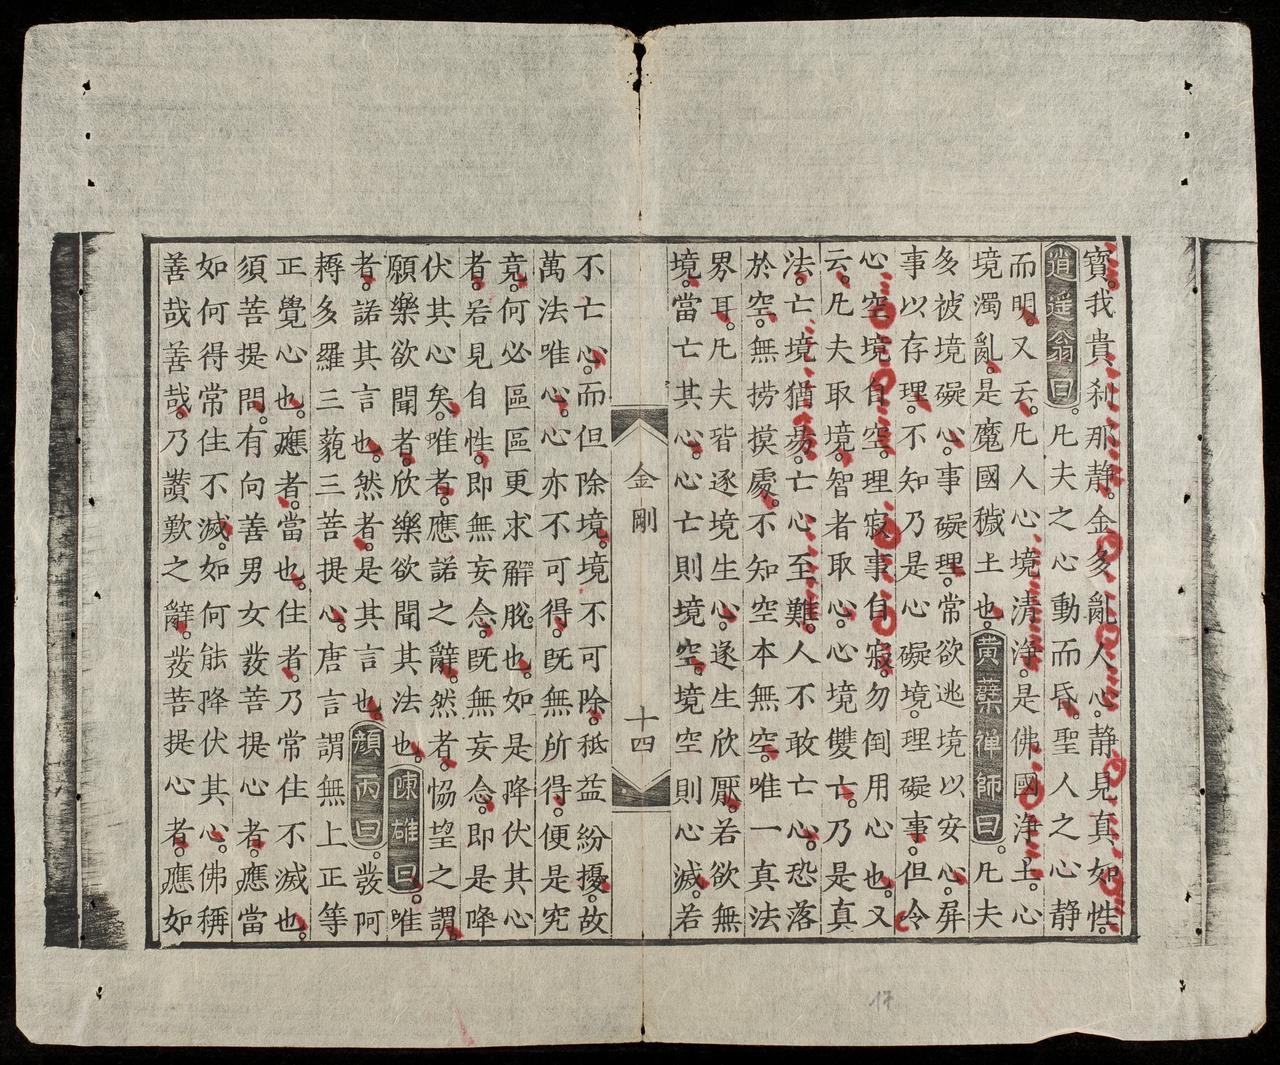 寳。我貴刹那静。金多亂人心。静見真如性。
逍遥翁曰。凡夫之心動而昏。聖人之心静
而明。又云。凡人心境清浄。是佛國浄土。心
境濁亂。是魔國穢土也。黄蘗禅師曰。凡夫
多被境礙心。事礙理。常欲逃境以安心。屏
事以存理。不知乃是心礙境。理礙事。但令
心空境自空。理寂事自寂。勿倒用心也。又
云。凡夫取境。智者取心。心境雙亡。乃是真
法。亡境猶昜。亡心至難。人不敢亡心。恐落
於空。無撈摸處。不知空本無空。唯一真法
界耳。凡夫皆逐境生心。遂生欣厭。若欲無
境。當亡其心。心亡則境空。境空則心滅。若
金剛
十四
不亡心。而但除境。境不可除。秪益紛擾。故
萬法唯心。心亦不可得。既無所得。便是究
竟。何必區區更求解脫也。如是降伏其心
者。若見自性。即無妄念。既無妄念。即是降
伏其心矣。唯者。應諾之辭。然者。恊望之謂。
願樂欲聞者。欣樂欲聞其法也。陳雄曰。唯
者。諾其言也。然者。是其言也。顔丙曰。發阿
耨多羅三藐三菩提心。唐言謂無上正等
正覺心也。應者。當也。住者。乃常住不滅也。
須菩提問。有向善男女發菩提心者。應當
如何得常住不滅。如何能降伏其心。佛稱
善哉善哉。乃讚歎之辭。發菩提心者。應如
17